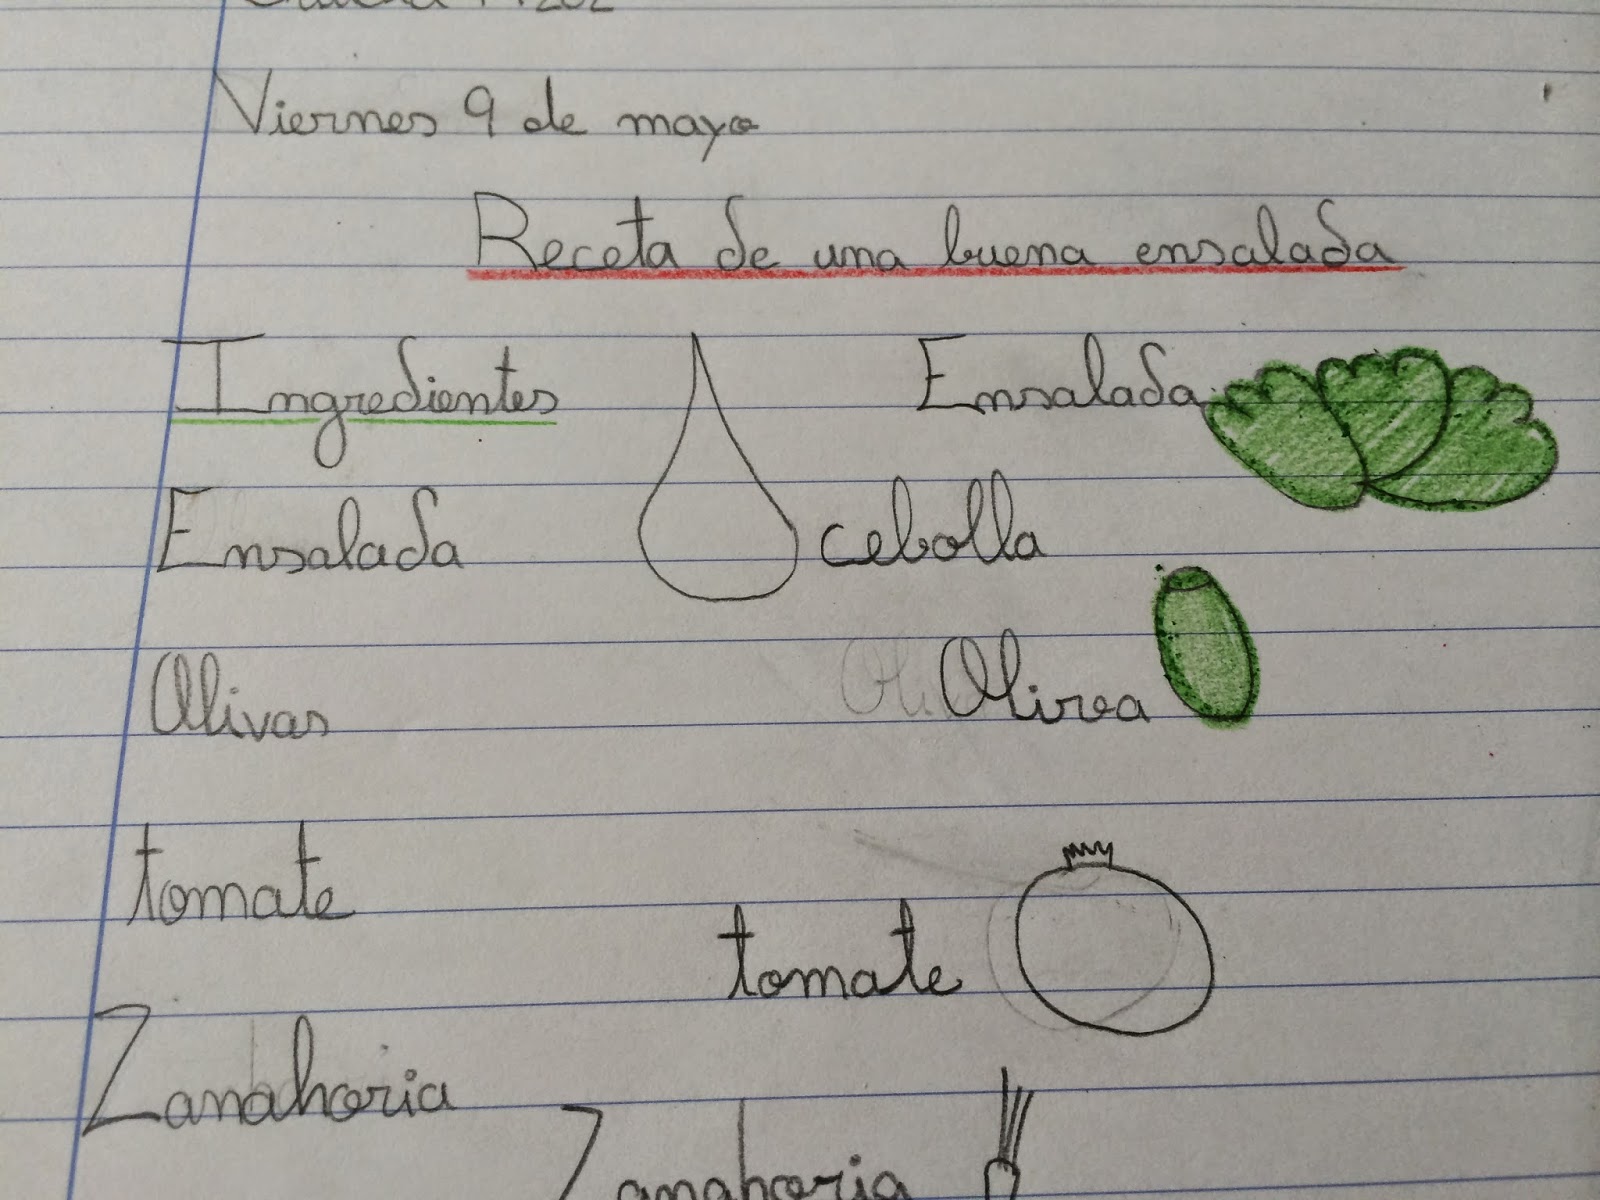 Viernes 9 de mayo
Receta de una buena ensalada
Ingredientes
Ensalada
Ensalada
cebolla
Olivas
Oli Olivea
tomate
tomate
Zanahoria
Zanahoria